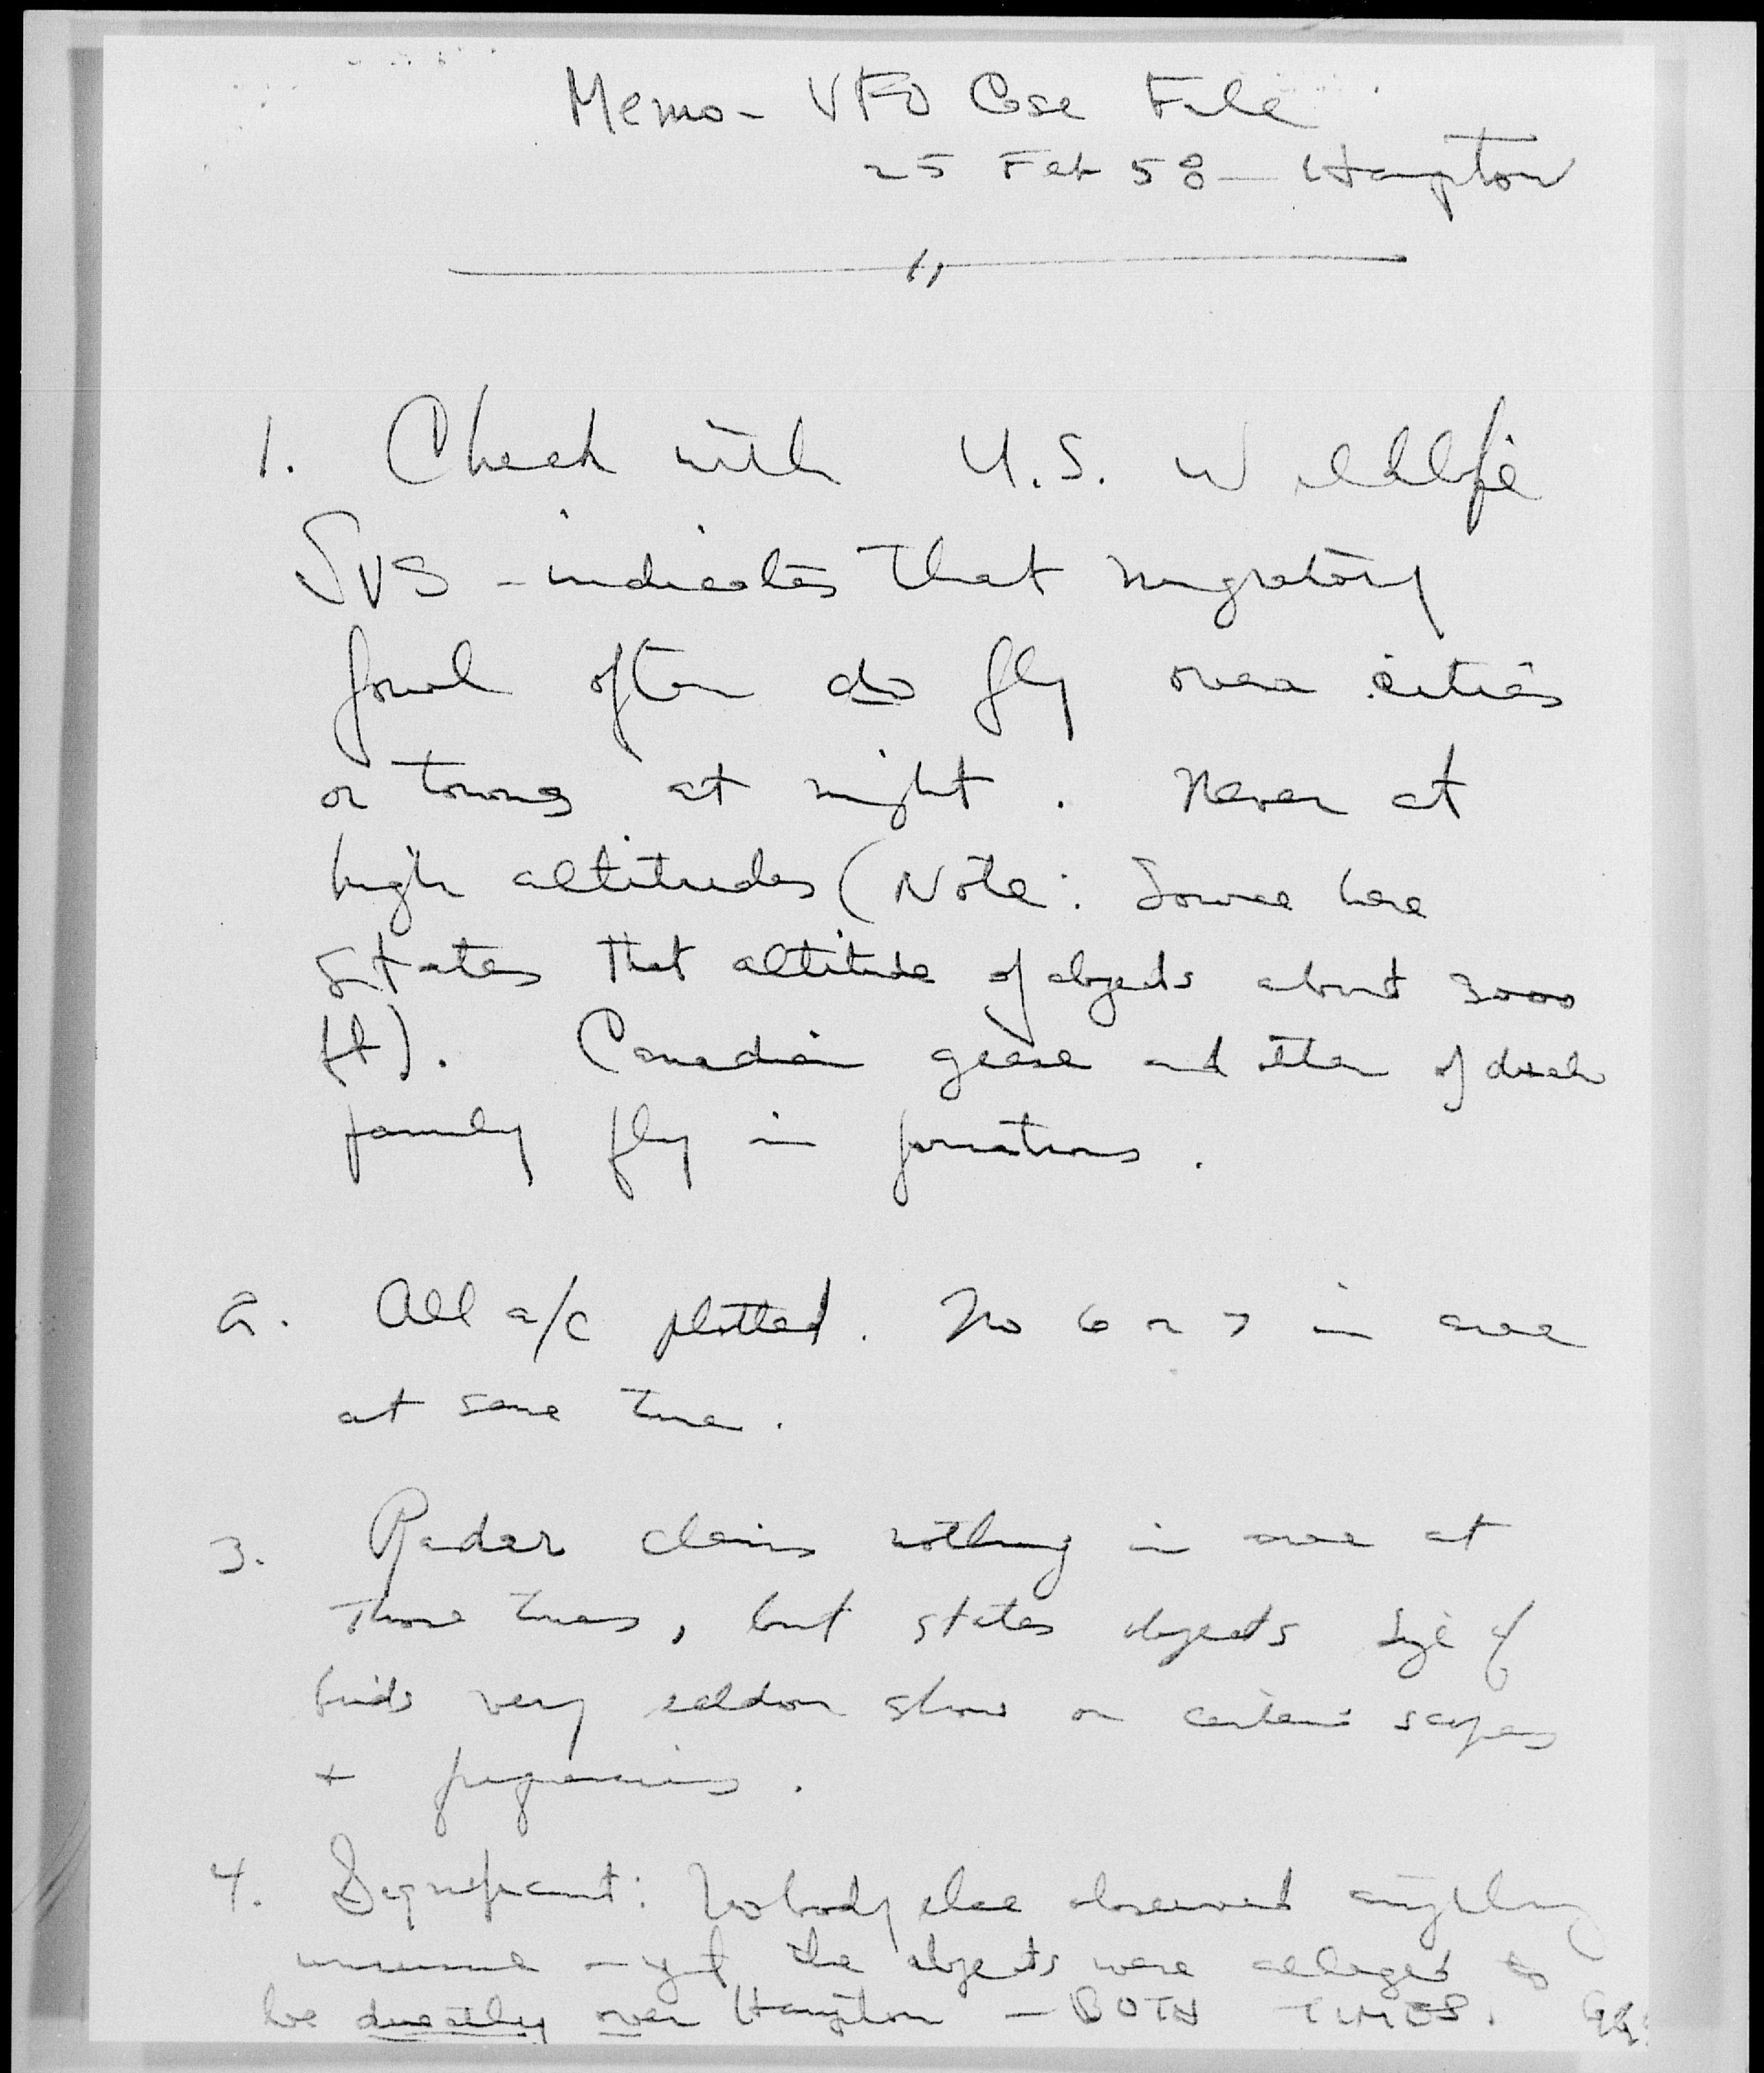 Memo - UFO Case File
25 Feb 58 - Hampton
1. Check with U.S. Wildlife
Svs - indicates that migratory
fowl often do fly over cities
or towns at night. Never at
high altitudes (Note: Source here
states that altitude of objects about 3000
ft). Canadian geese and other of duck
family fly in formations.
2. All a/c plotted. No 6 or 7 in area
at same time.
3. Radar claims nothing in area at
those times, but states objects size of
birds very seldom show on certain scopes
+ frequencies.
4. Significant: Nobody else observed anything
unusual - yet the objects were alleged to
be directly over Hampton - BOTH TIMES.